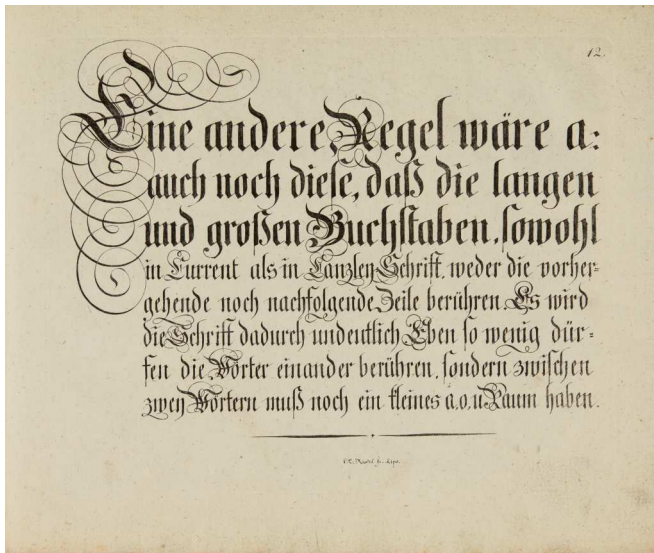 12.
Eine andere Regel wäre a:
auch noch diese, daß die langen
und großen Buchstaben, sowohl
in Current als in Canzley-Schrift, weder die vorher-
gehende noch nachfolgende Zeile berühren. Es wird
die Schrift dadurch undeutlich. Eben so wenig dür-
fen die Wörter einander berühren, sondern zwischen
zwey Wörtern muß noch ein kleines a. o. u Raum haben.